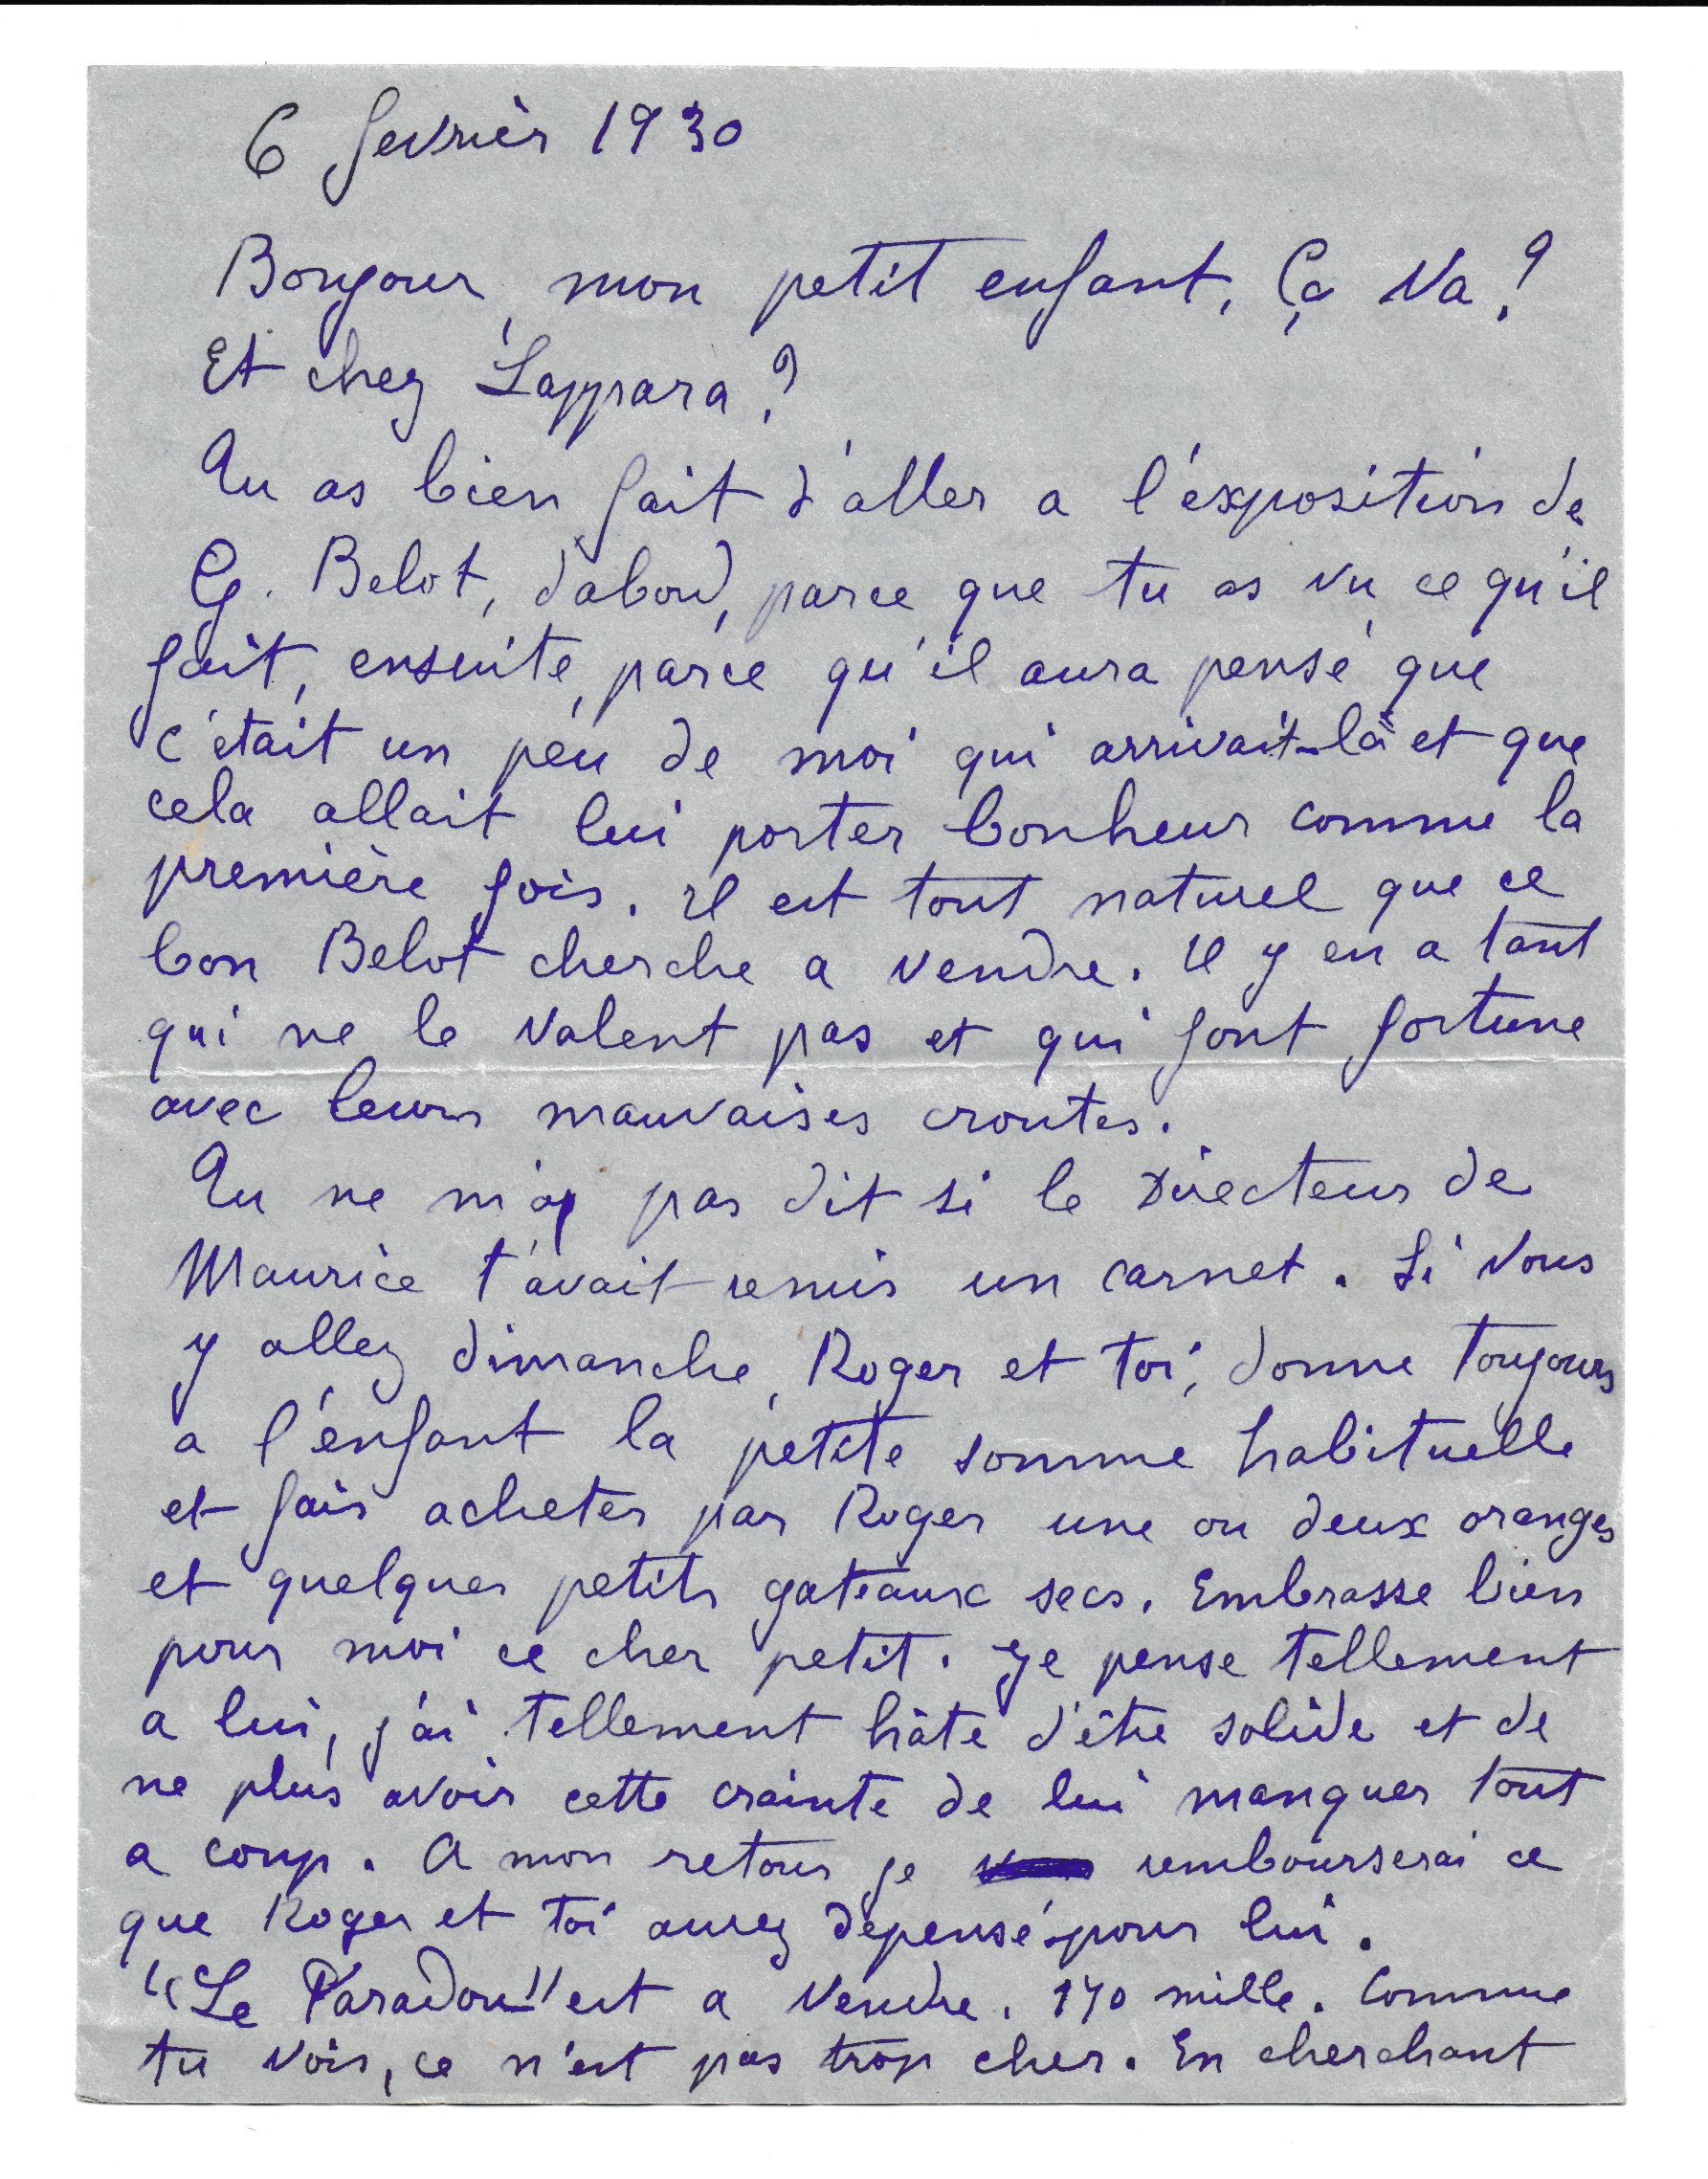 6 fevrièr 1930
Bonjour, mon petit enfant, Ça va ?
Et chez Lappara ?
Tu as bien fait d'aller a l'éxposition de
G. Belot, d'abord, parce que tu as vu ce qu'il
fait, ensuite, parce qu'il aura pensé que
c'était un peu de moi qui arrivait là et que
cela allait lui porter bonheur comme la
première fois. Il est tout naturel que ce
bon Belot cherche a vendre. Il y en a tant
qui ne le valent pas et qui font fortune
avec leurs mauvaises croutes.
Tu ne m'as pas dit si le Directeur de
Maurice t'avait remis un carnet. Si vous
y allez dimanche, Roger et toi, donne toujours
a l'enfant la petite somme habituelle
et fais acheter par Roger une ou deux oranges
et quelques petits gateaux secs. Embrasse bien
pour moi ce cher petit. Je pense tellement
a lui, j'ai tellement hâte d'être solide et de
ne plus avoir cette crainte de lui manquer tout
a coup. A mon retour je rembourserai ce
que Roger et toi aurez depensé pour lui.
"Le Paradou" est a vendre. 170 mille. Comme
tu vois, ce n'est pas trop cher. En cherchant